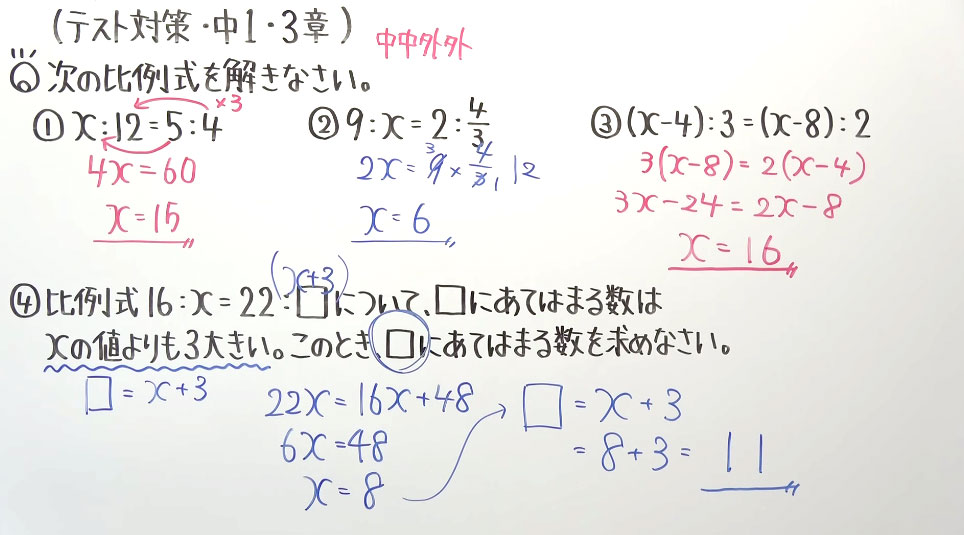 (テスト対策・中1・3章)
中中外外
Q 次の比例式を解きなさい。
×3
① x:12=5:4
4x=60
x=15
② 9:x=2:4/3
2x=9×4/3 3 1 12
x=6
③ (x-4):3=(x-8):2
3(x-8)=2(x-4)
3x-24=2x-8
x=16
(x+3)
④ 比例式16:x=22:□について、□にあてはまる数は
xの値よりも3大きい。このとき、□にあてはまる数を求めなさい。
□=x+3
22x=16x+48
6x=48
x=8
□=x+3
=8+3=11